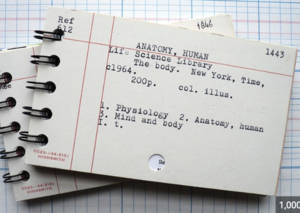 1846
Ref
612
ANATOMY, HUMAN 1443
Life Science Library
The body. New York, Time,
c1964.
200p. col. illus.
1. Physiology 2. Anatomy, human
3. Mind and body
I. t.
1,000